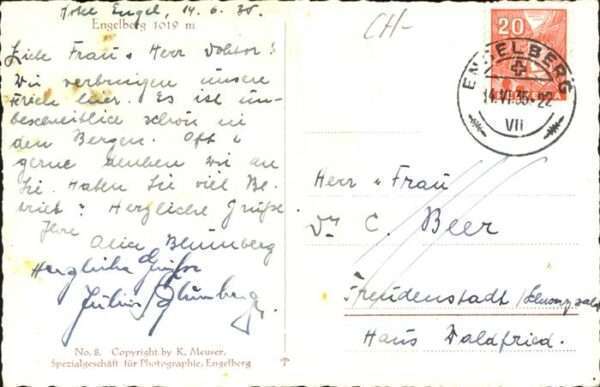 Hotel Engel, 14.6.35.
Engelberg 1019 m
Liebe Frau & Herr Doktor!
Wir verbringen unsere
Ferien hier. Es ist un-
beschreiblich schön in
den Bergen. Oft &
gerne denken wir an
Sie. Haben Sie viel Be-
trieb? Herzliche Grüße
Ihre
Alice Blumberg
Herzliche Grüße
Julius Blumberg
No. 8. Copyright by K. Meuser,
Spezialgeschäft für Photographie, Engelberg
CH-
20
ENGELBERG
14.VI.35-22
VII
Herr & Frau
Dr. C. Beer
Freudenstadt / Schwarzwald
Haus Waldfried.